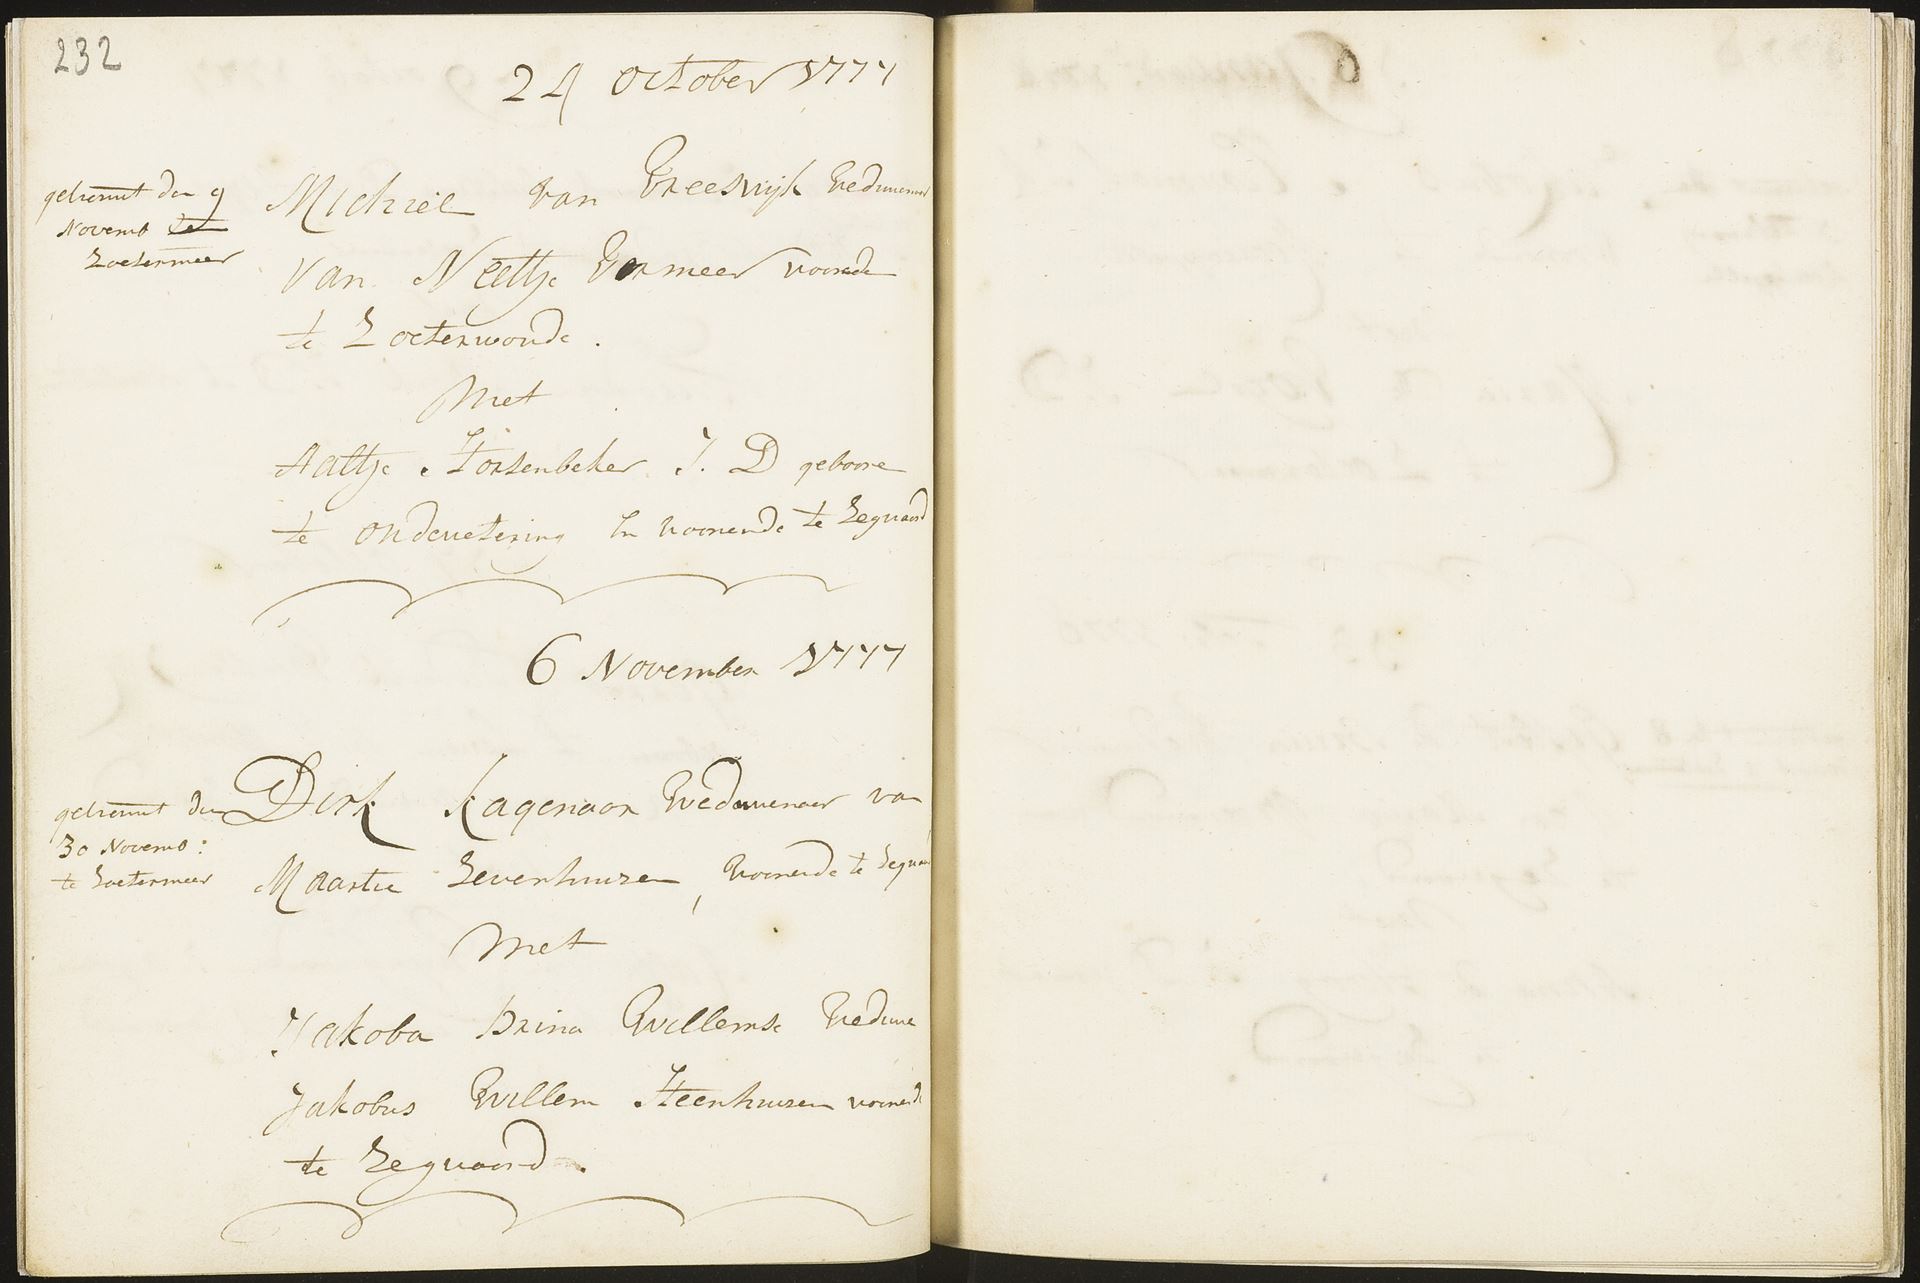 232
24 october 1777
getrouwt den 9
Novemb te
Zoetermeer
Michiel van Vreeswijk Weduwenaar
van Neeltje Vermeer woonende
te Zoeterwoude.
Met
Aaltje Stortenbeker J. D geboore
te oudewetering En woonende te Zegwaard
6 November 1777
getrouwt den
30 Novemb:
te Zoetermeer
Dirk Kagenaar Weduwenaar van
Maartie Zevenhuizen, woonende te Zegwaard
Met
Jakoba Brina Willemse Weduwe
Jakobus Willem Steenhuizen woonende
te Zegwaard.